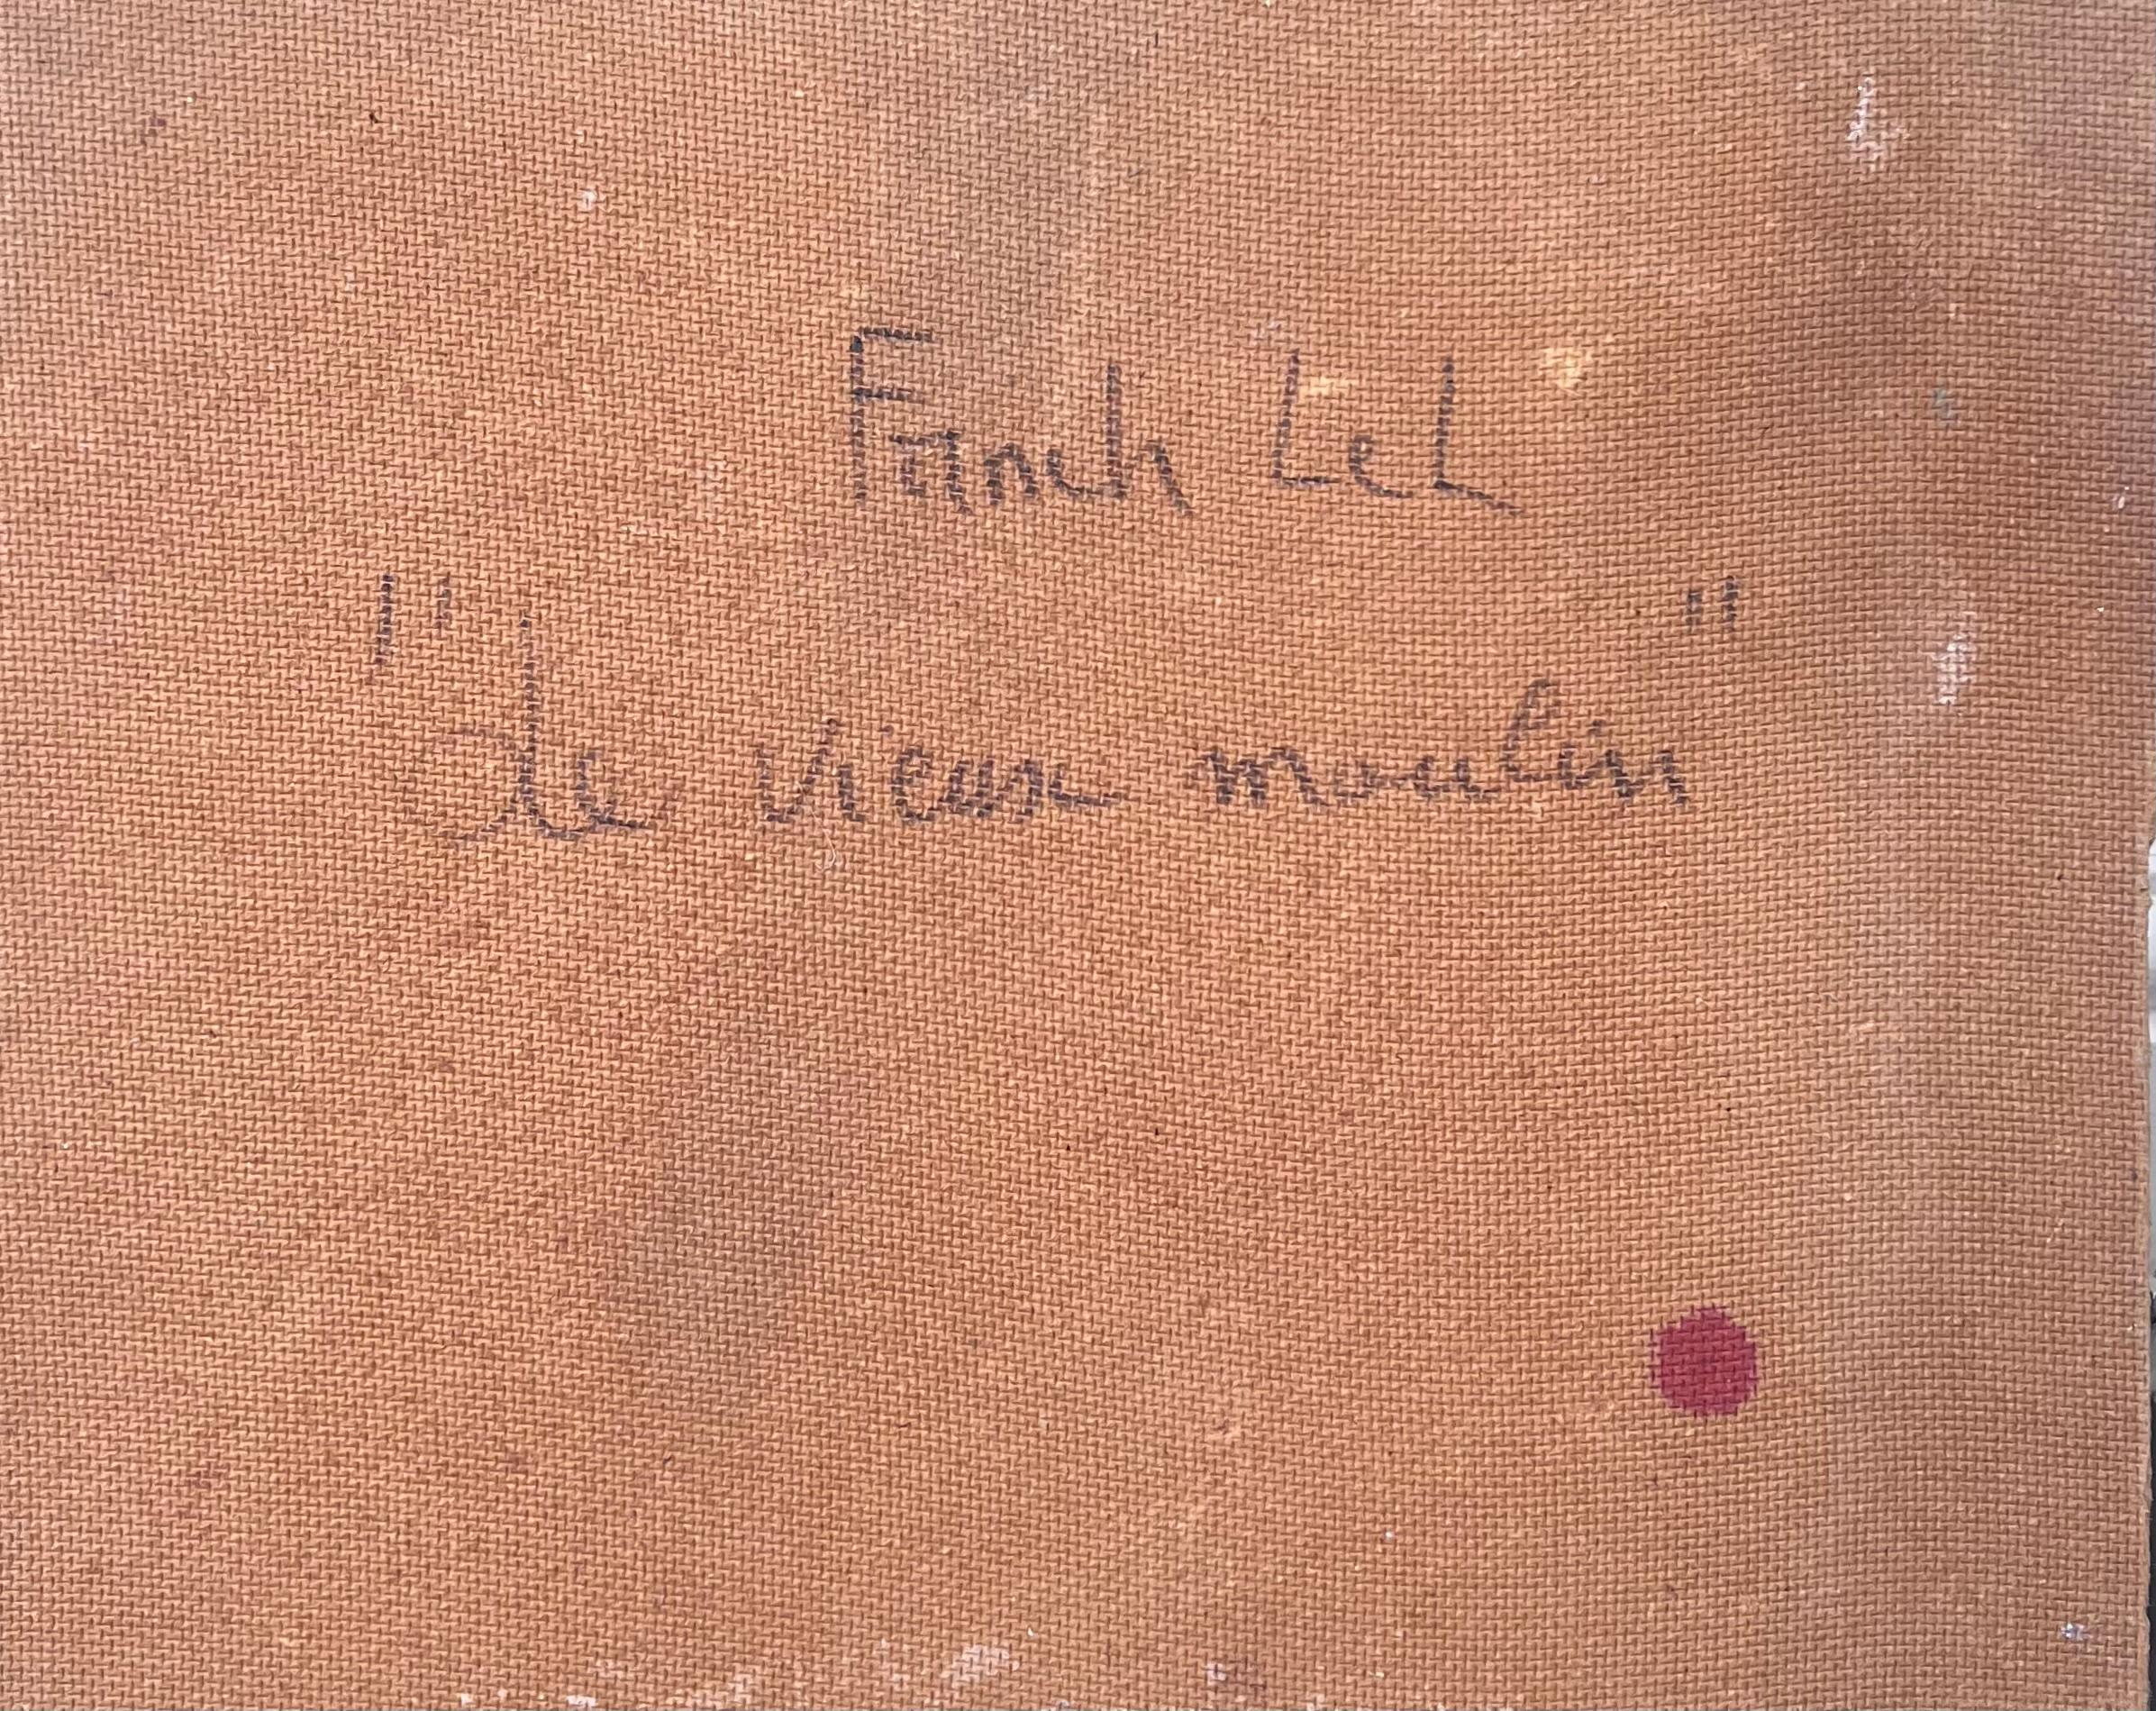 Fanch Lel
"Le vieux moulin"